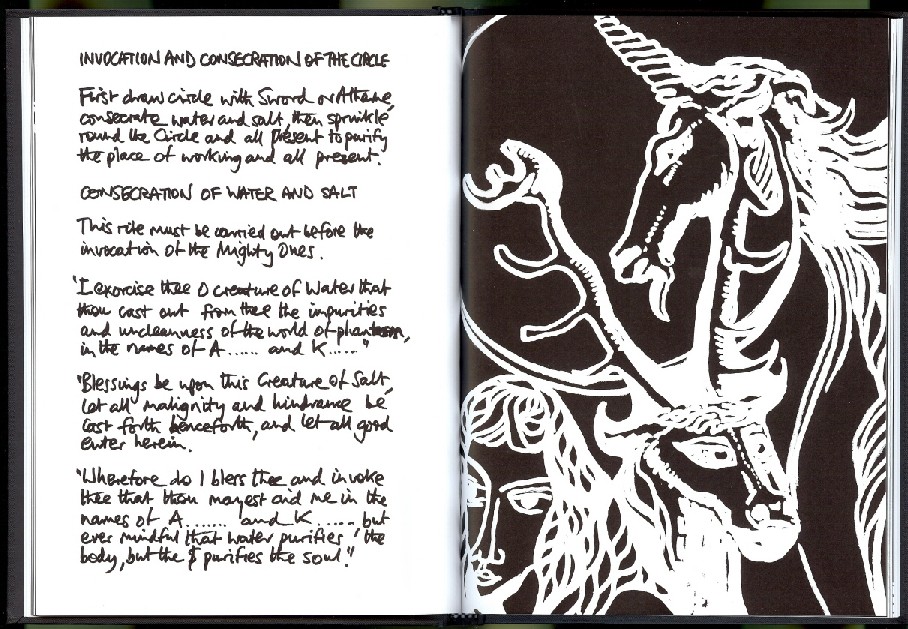 INVOCATION AND CONSECRATION OF THE CIRCLE
First draw circle with Sword or Athame,
consecrate water and salt, then sprinkle
round the Circle and all present to purify
the place of working and all present.
CONSECRATION OF WATER AND SALT
This rite must be carried out before the
invocation of the Mighty Ones.
"I exorcise thee O creature of Water that
thou cast out from thee the impurities
and uncleanness of the world of phantasm,
in the names of A...... and K......"
"Blessings be upon this Creature of Salt,
let all malignity and hindrance be
cast forth henceforth, and let all good
enter herein.
"Wherefore do I bless thee and invoke
thee that thou mayest aid me in the
names of A....... and K......, but
ever mindful that water purifies the
body, but the purifies the soul."